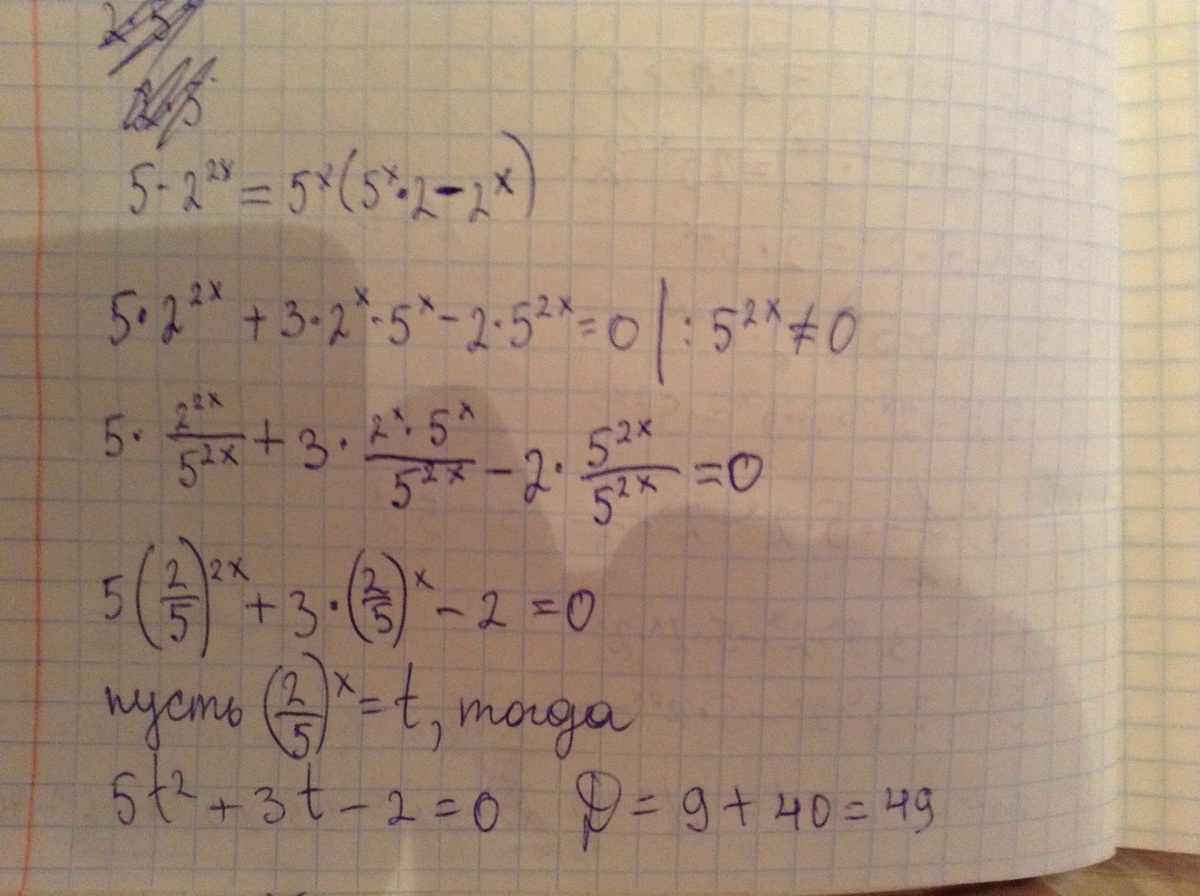 5·2^{2x} = 5^x(5^x·2-2^x)
5·2^{2x} + 3·2^x·5^x - 2·5^{2x} = 0 | : 5^{2x} ≠ 0
5·\frac{2^{2x}}{5^{2x}} + 3·\frac{2^x·5^x}{5^{2x}} - 2·\frac{5^{2x}}{5^{2x}} = 0
5(\frac{2}{5})^{2x} + 3·(\frac{2}{5})^x - 2 = 0
пусть (\frac{2}{5})^x = t, тогда
5t^2 + 3t - 2 = 0 D = 9 + 40 = 49